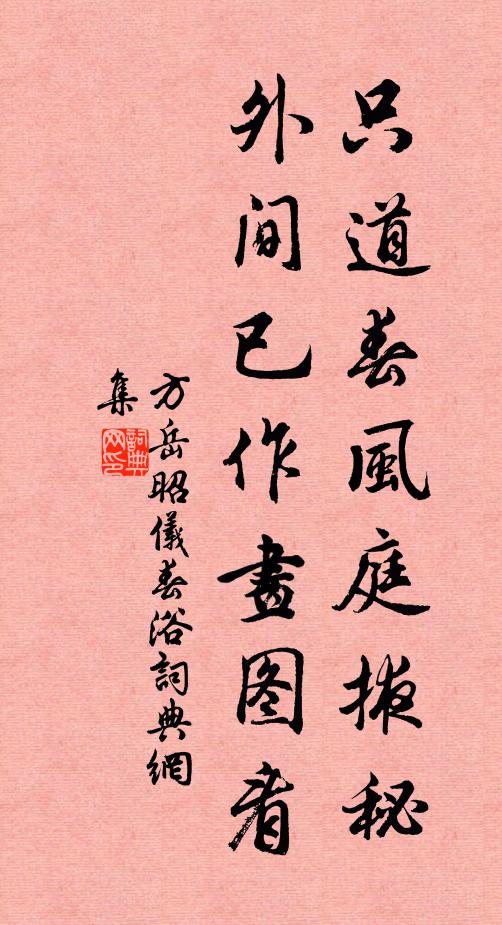 只道春風庭掖秘
外間已作畫图看
方岳昭儀春浴詞典網
集
詞典
网印